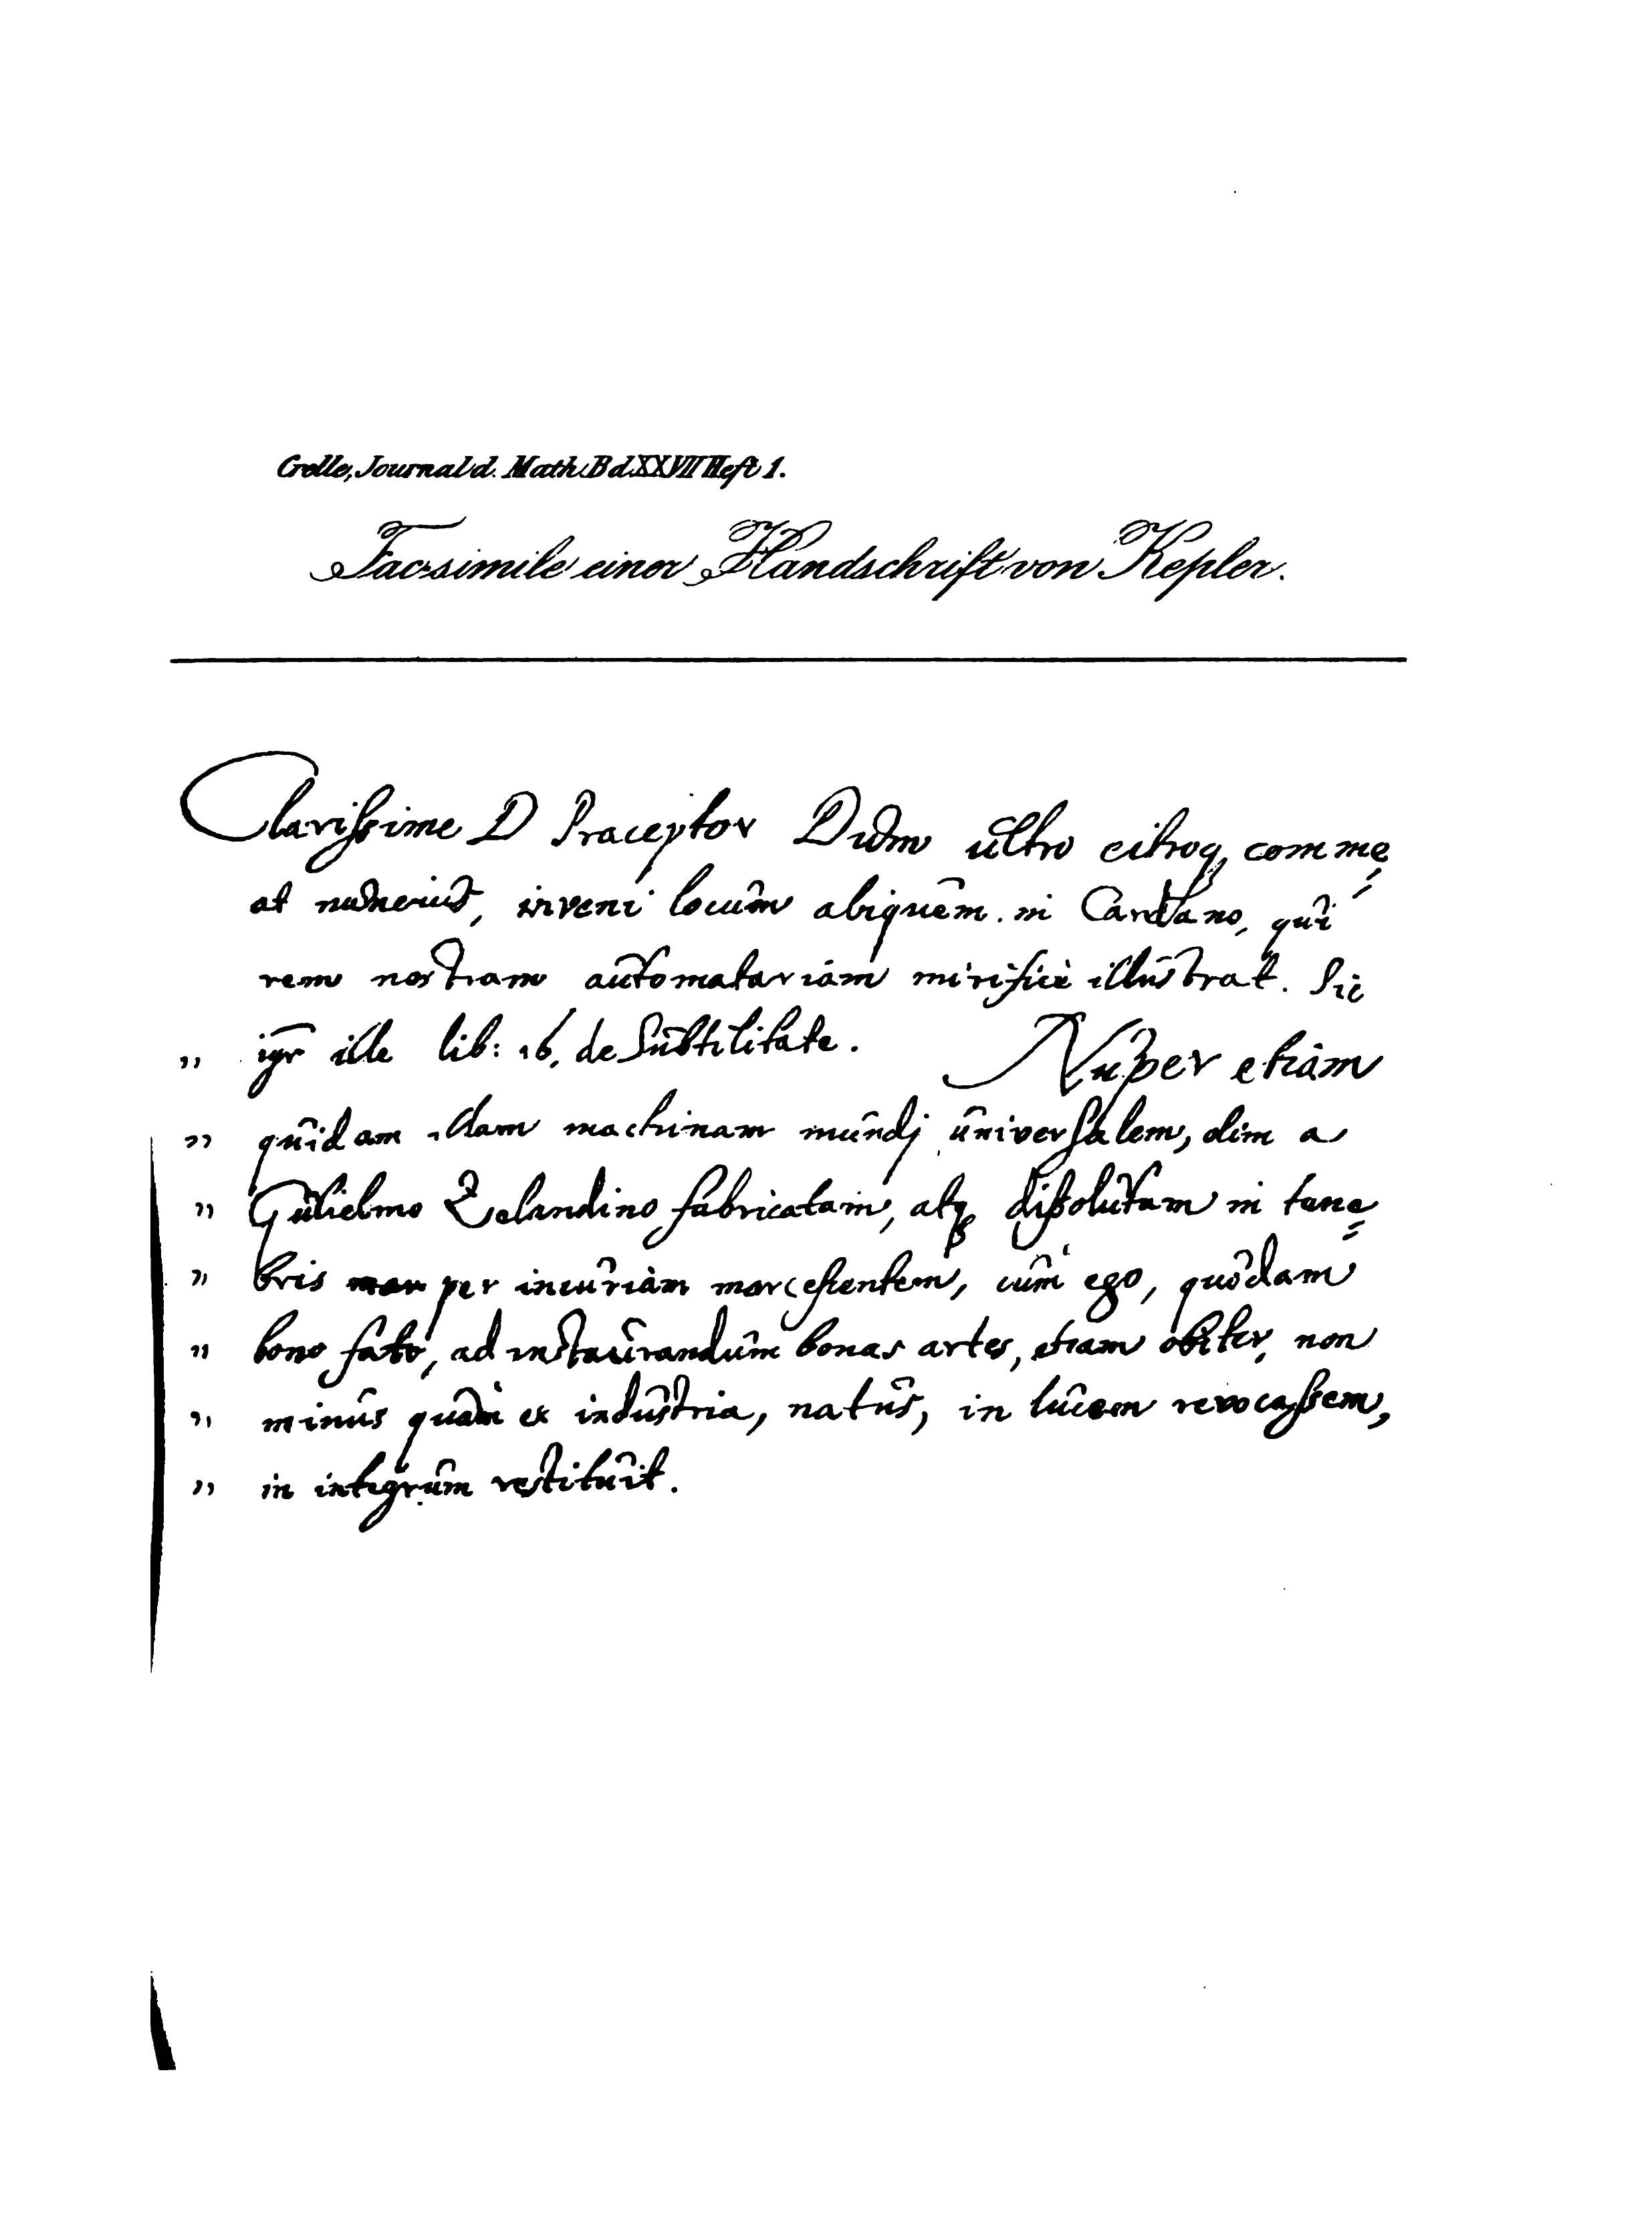 Crelle, Journal d. Math. Bd. XXVII Heft 1.
Facsimile einer Handschrift von Kepler.
Clarissime D Praeceptor Dum ultro citroq, comme=
at nuncius, inveni locum aliquem in Cardano, qui
rem nostram automatariam mirificè illustrat. Sic
„ igr ille lib: 16, de Subtilitate. Nuper etiam
„ quidam illam machinam mundj universalem, olim a
„ Gulielmo Zelandino fabricatam, atq dissolutam in tene=
„ bris per incuriam marcescentem, cum ego, quodam
„ bono fato, ad instaurandum bonas artes, etiam obiter, non
„ minus quam ex industria, natus, in lucem revocassem,
„ in integrum restituit.